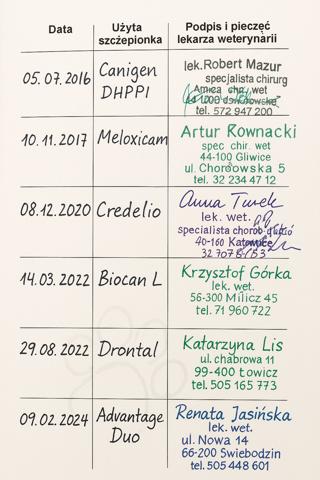 Data
Użyta
szczepionka
Podpis i pieczęć
lekarza weterynarii
05.07.2016
Canigen
DHPPI
lek. Robert Mazur
specjalista chirurg
wet
tel. 572 947 200
10.11.2017
Meloxicam
Artur Rownacki
spec chir. wet
44-100 Gliwice
ul. Chorzowska 5
tel. 32 234 47 12
08.12.2020
Credelio
Anna Turek
lek. wet.
specjalista chorób
40-160 Katowice
14.03.2022
Biocan L
Krzysztof Górka
lek. wet.
56-300 Milicz 45
tel. 71 960 722
29.08.2022
Drontal
Katarzyna Lis
ul. chabrowa 11
99-400 Łowicz
tel. 505 165 773
09.02.2024
Advantage
Duo
Renata Jasińska
lek. wet.
ul. Nowa 14
66-200 Swiebodzin
tel. 505 448 601